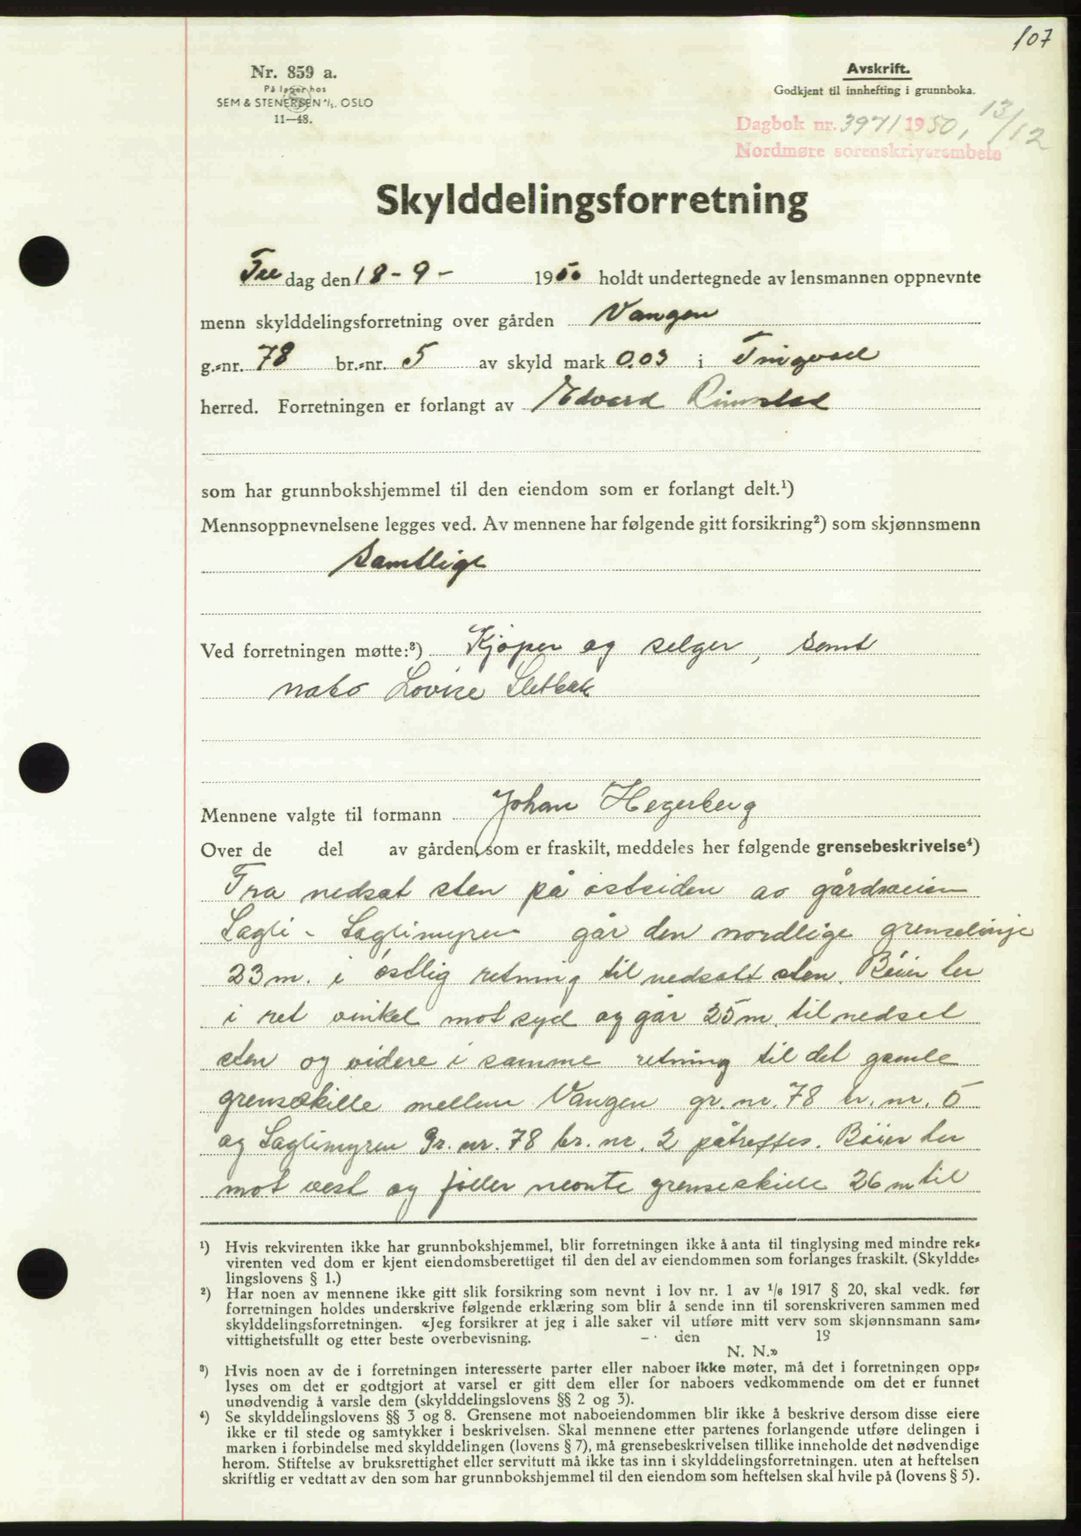 107
Nr. 859 a.
På lager hos
SEM & STENERSEN A/S. OSLO
11—48.
Avskrift.
Godkjent til innhefting i grunnboka.
Dagbok nr. 3971 1950, 13/12
Nordmøre sorenskriverembete
Skylddelingsforretning
dag den 18-9- 1950 holdt undertegnede av lensmannen oppnevnte
menn skylddelingsforretning over gården Vangen
g.=nr. 78 br.=nr. 5 av skyld mark 0.03 i Tingvoll
herred. Forretningen er forlangt av Edvard Rimstad
som har grunnbokshjemmel til den eiendom som er forlangt delt.¹)
Mennsoppnevnelsene legges ved. Av mennene har følgende gitt forsikring²) som skjønnsmenn
Samtlige
Ved forretningen møtte:³) Kjøper og selger, samt
nabo Lovise Sletbak
Mennene valgte til formann Johan Hegerberg
Over de del av gården, som er fraskilt, meddeles her følgende grensebeskrivelse⁴)
Fra nedsat sten på østsiden av gårdsveien
Sagli - Saglimyren går den nordlige grenselinje
23 m. i østlig retning til nedsatt sten. Bøier her
i ret vinkel mot syd og går 25 m. til nedsat
sten og videre i samme retning til det gamle
grenseskille mellem Vangen gr. nr. 78 br. nr. 5
og Saglimyren Gr. nr. 78 br. nr. 2 påtreffes. Bøier her
mot vest og følger nevnte grenseskille 26 m til
¹) Hvis rekvirenten ikke har grunnbokshjemmel, blir forretningen ikke å anta til tinglysing med mindre rek=
virenten ved dom er kjent eiendomsberettiget til den del av eiendommen som forlanges fraskilt. (Skyldde=
lingslovens § 1.)
²) Har noen av mennene ikke gitt slik forsikring som nevnt i lov nr. 1 av ¹/₆ 1917 § 20, skal vedk. før
forretningen holdes underskrive følgende erklæring som blir å sende inn til sorenskriveren sammen med
skylddelingsforretningen. «Jeg forsikrer at jeg i alle saker vil utføre mitt verv som skjønnsmann sam=
vittighetsfullt og etter beste overbevisning. — den 19
N. N.»
³) Hvis noen av de i forretningen interesserte parter eller naboer ikke møter, må det i forretningen opp=
lyses om det er godtgjort at varsel er gitt dem eller for naboers vedkommende om det er funnet
unødvendig å varsle dem (skylddelingslovens §§ 2 og 3).
⁴) Se skylddelingslovens §§ 3 og 8. Grensene mot naboeiendommen blir ikke å beskrive dersom disse eiere
ikke er til stede og samtykker i beskrivelsen. Skal mennene etter partenes forlangende utføre delingen i
marken i forbindelse med skylddelingen (lovens § 7), må grensebeskrivelsen tillike inneholde det nødvendige
herom. Stiftelse av bruksrettighet eller servitutt må ikke tas inn i skylddelingsforretningen. uten at heftelsen
skriftlig er vedtatt av den som har grunnbokshjemmel til den eiendom som heftelsen skal hvile på (lovens § 5).